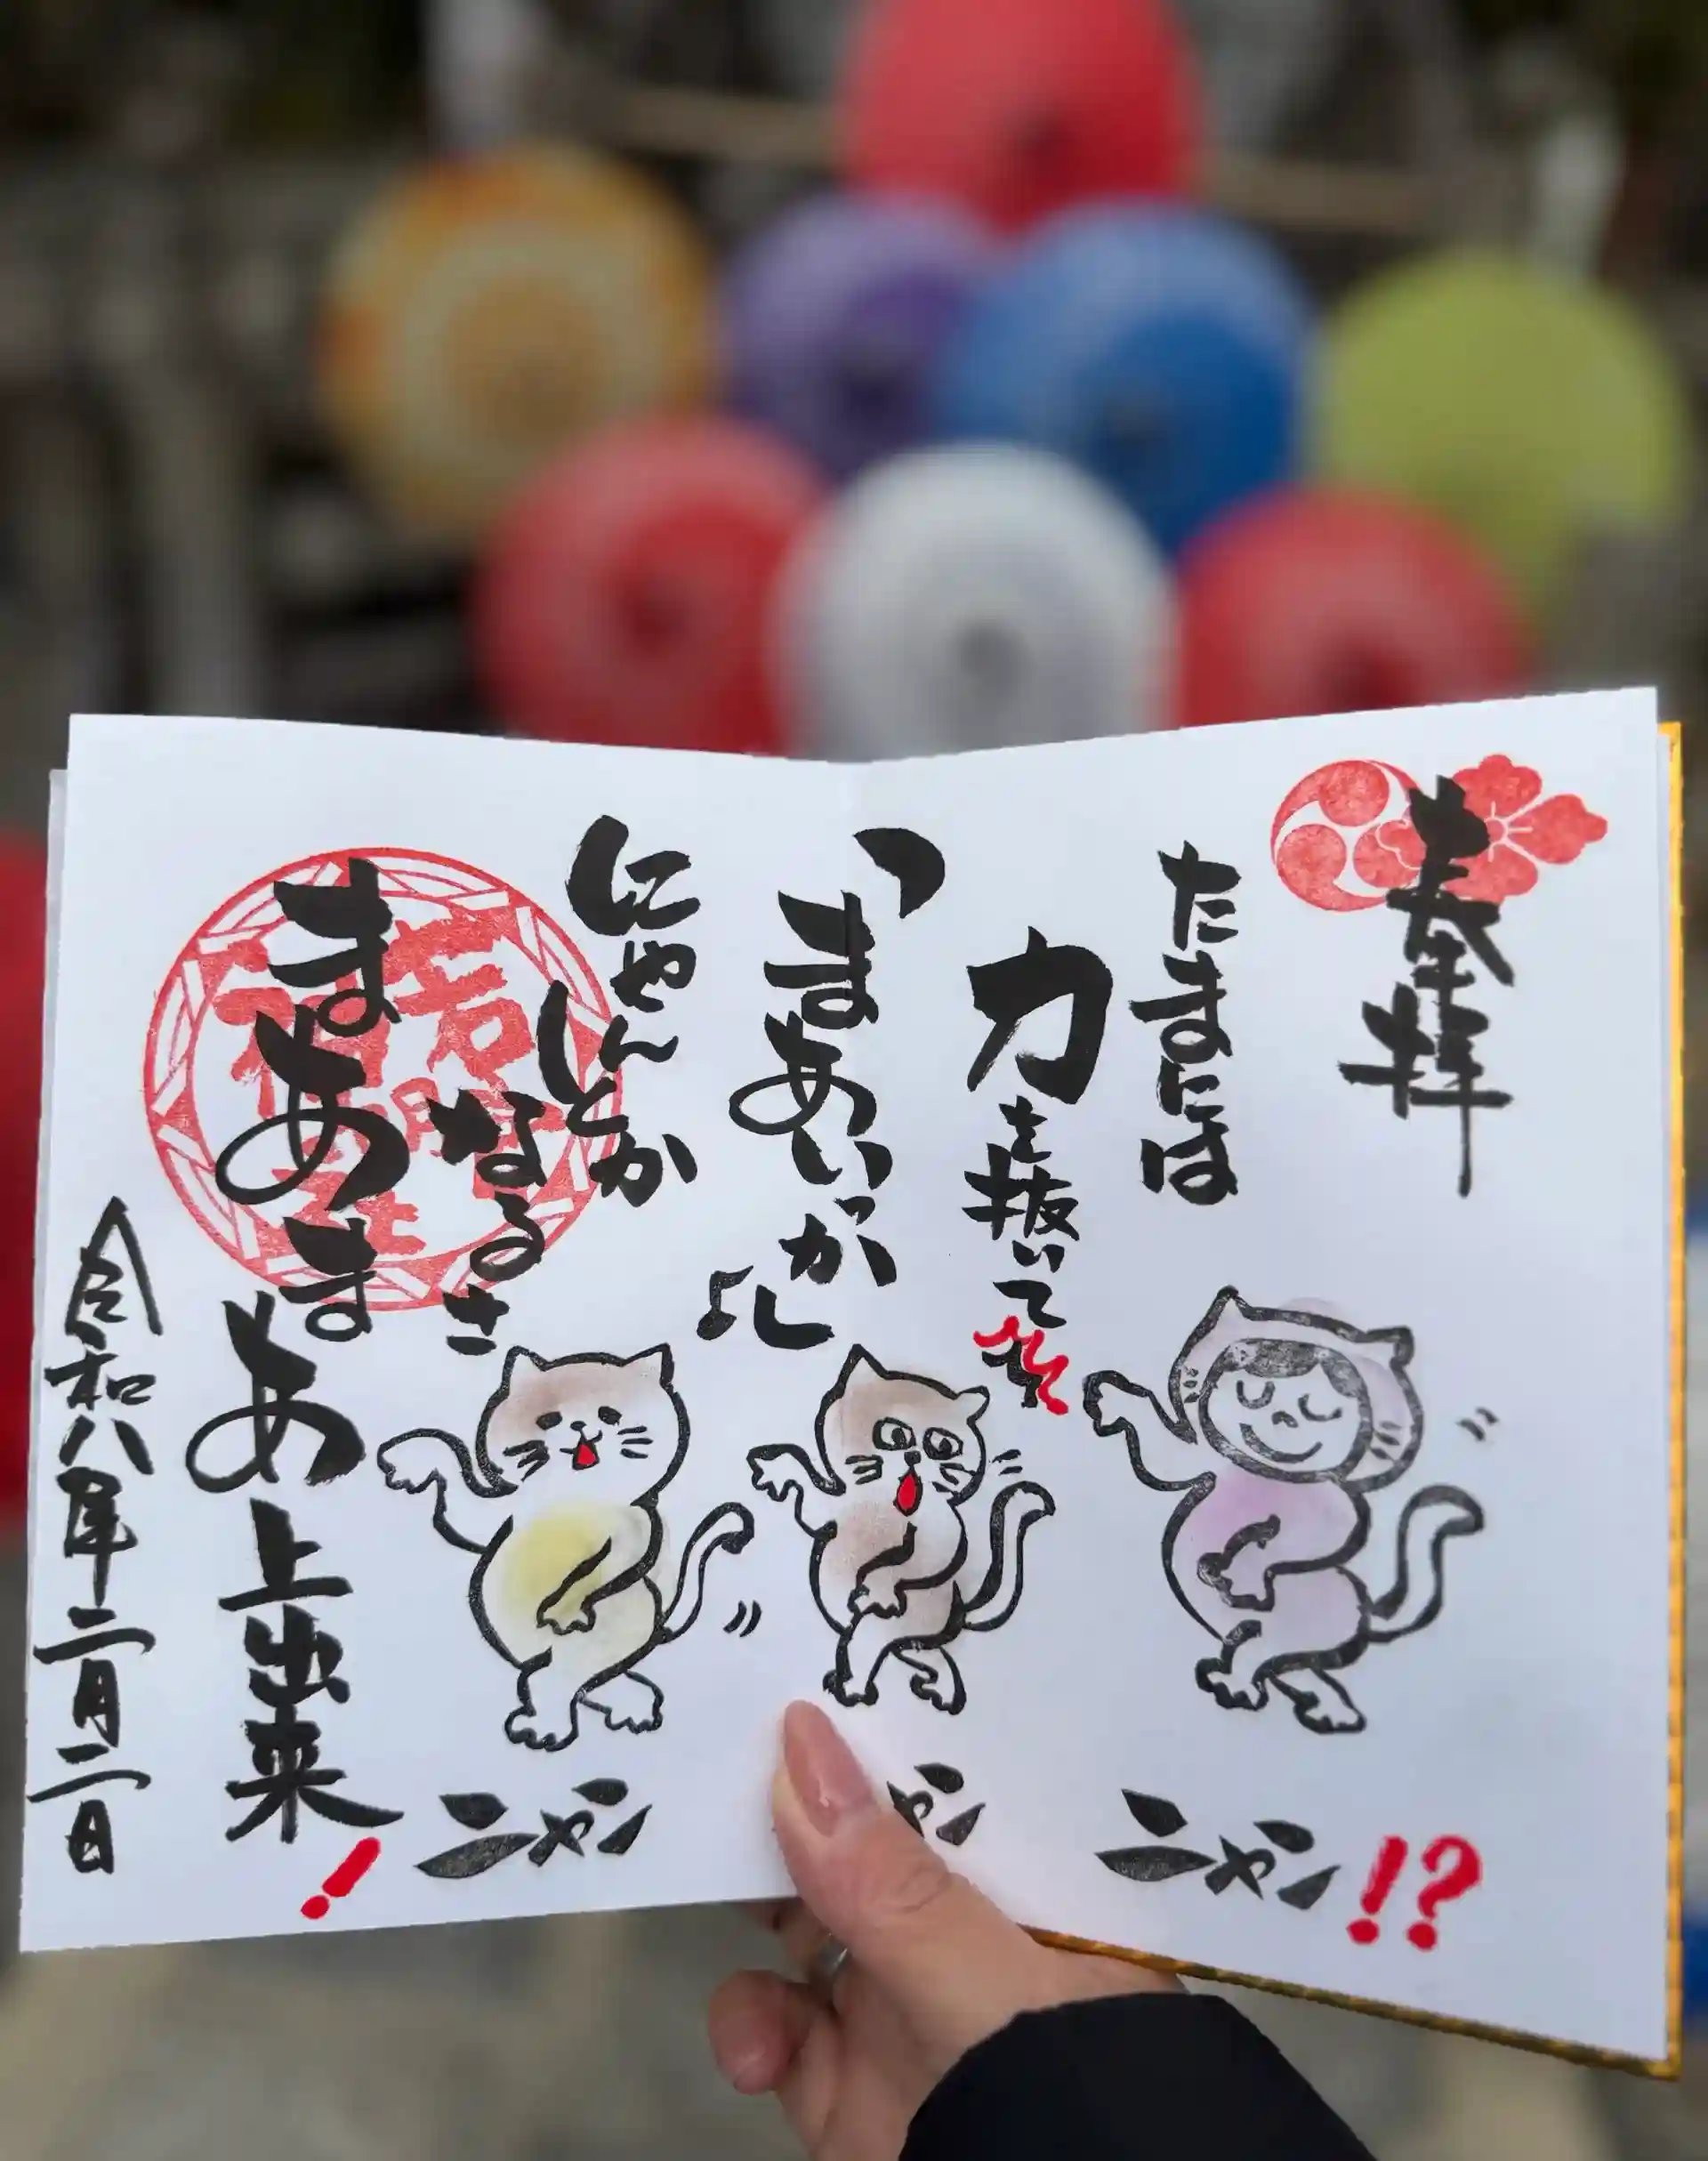 奉拝
たまには
力を抜いて
「まあいっか」♪
にゃんとか
なるさ
まあまあ
上出来!
令和八年二月二日
ニャン
ャン
ニャン!?